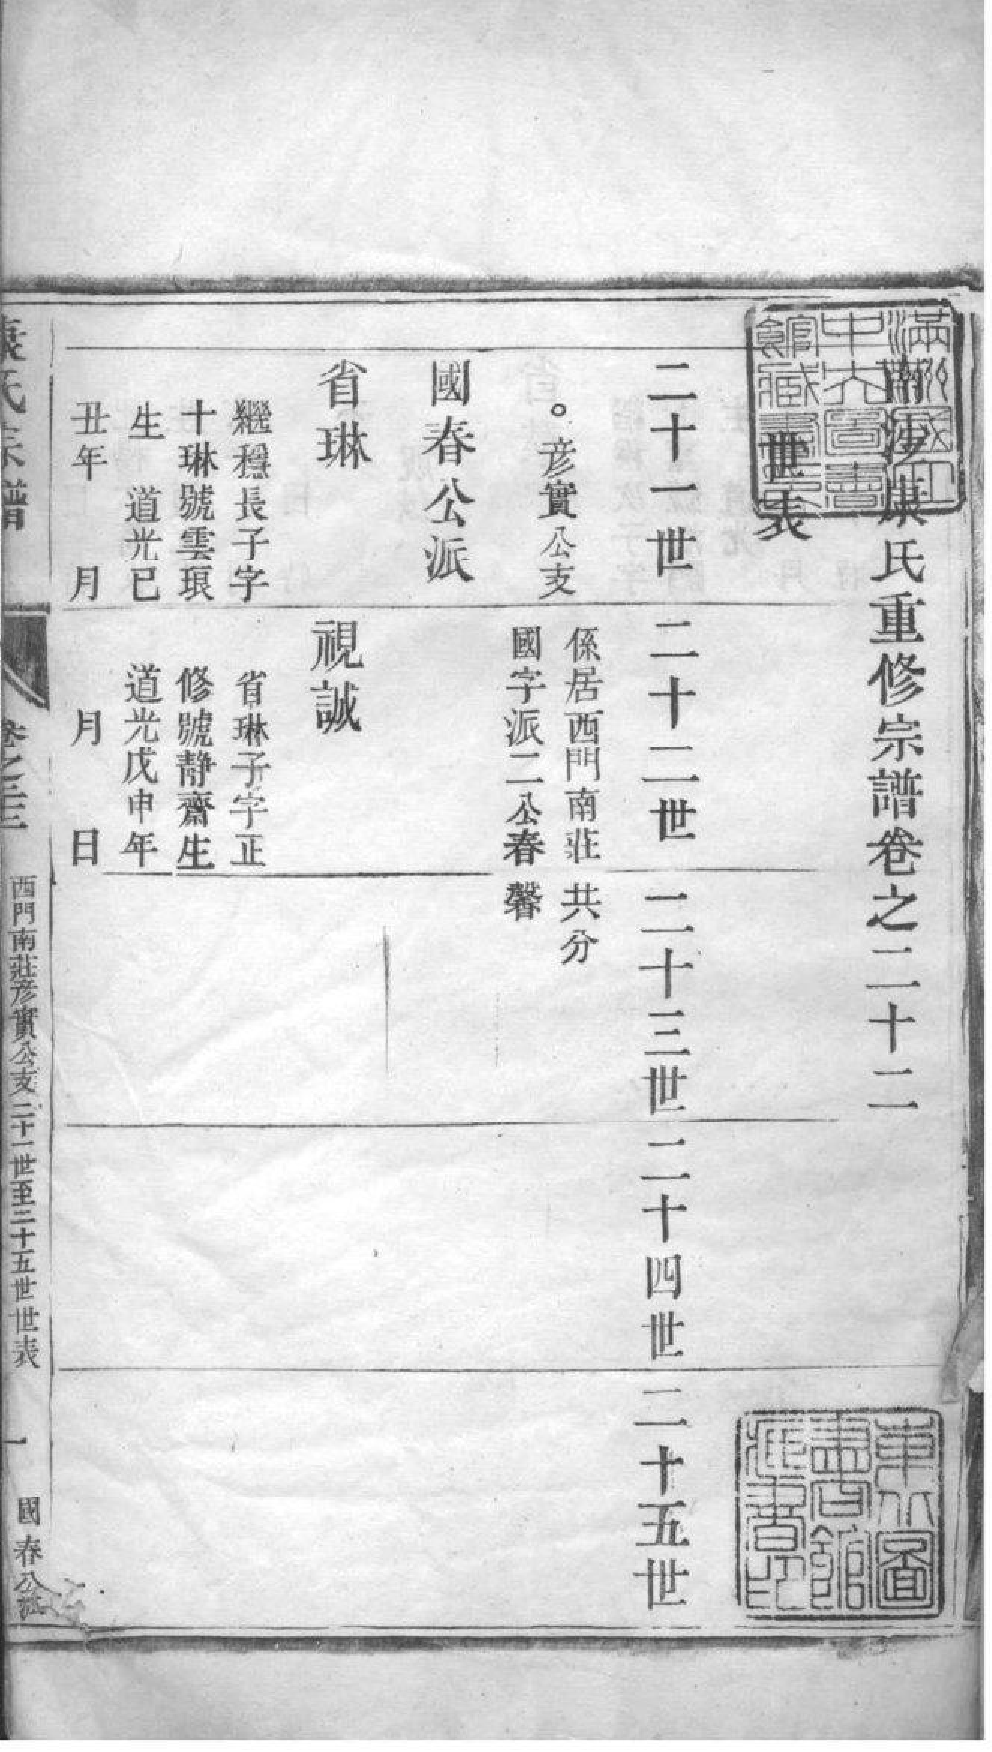 南沙康氏重修宗譜卷之二十二
世表
二十一世 二十二世 二十三世 二十四世 二十五世
彥實公支
係居西門南莊共分
國字派二公春馨
國春公派
省琳
繼穩長子字
十琳號雲琅
生 道光已
丑年 月
視誠
省琳子字正
修號靜齋生
道光戊申年
月 日
康氏宗譜
卷之二十二
西門南莊彥實公支二十一世至二十五世世表
一
國春公派
滿洲國立
中央圖書
館藏書
東北圖
書館
藏書印